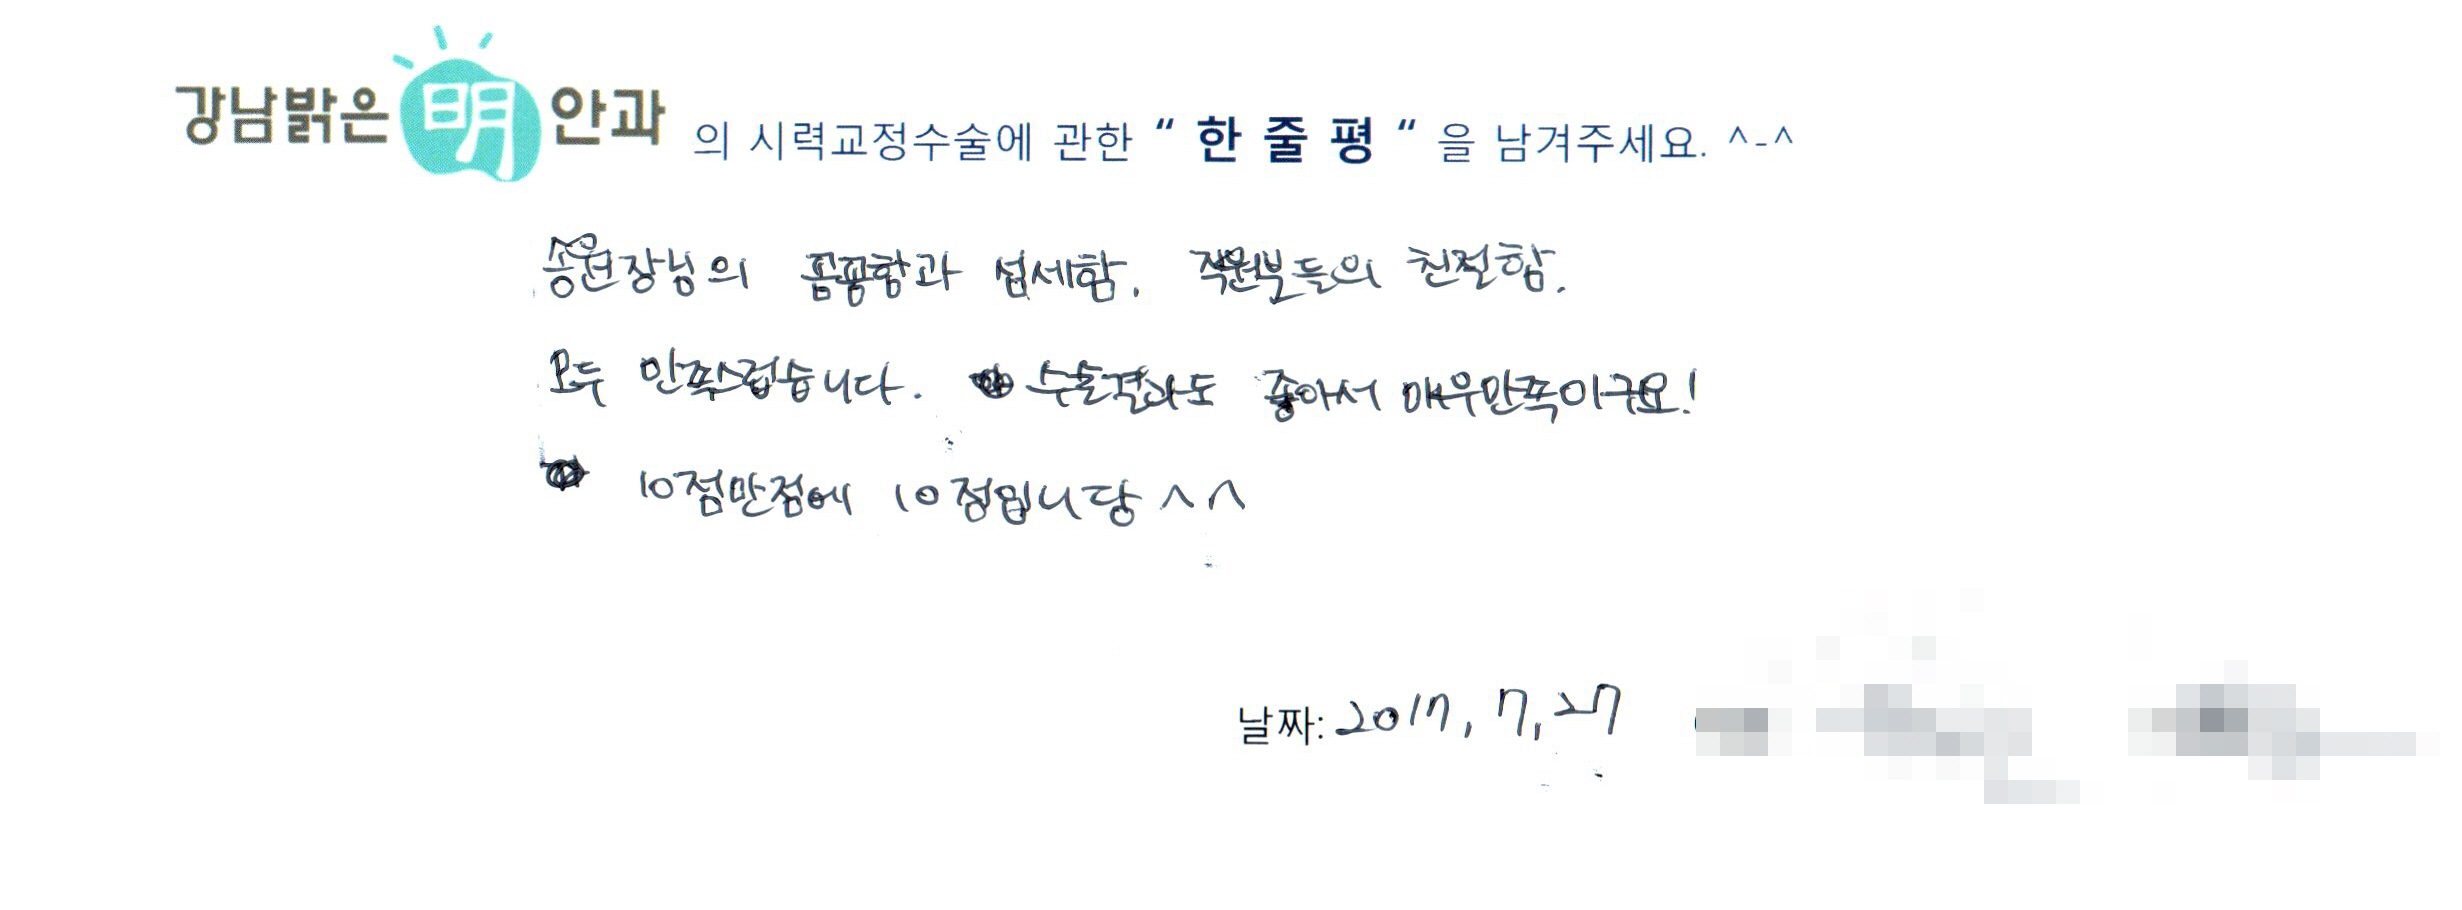 강남밝은 明 안과 의 시력교정수술에 관한 “ 한 줄 평 “ 을 남겨주세요. ^-^
송원장님의 꼼꼼함과 섬세함. 직원분들의 친절함.
모두 만족스럽습니다. 수술결과도 좋아서 매우만족이구요!
10점만점에 10점입니당 ^^
날짜: 2017, 7, 27